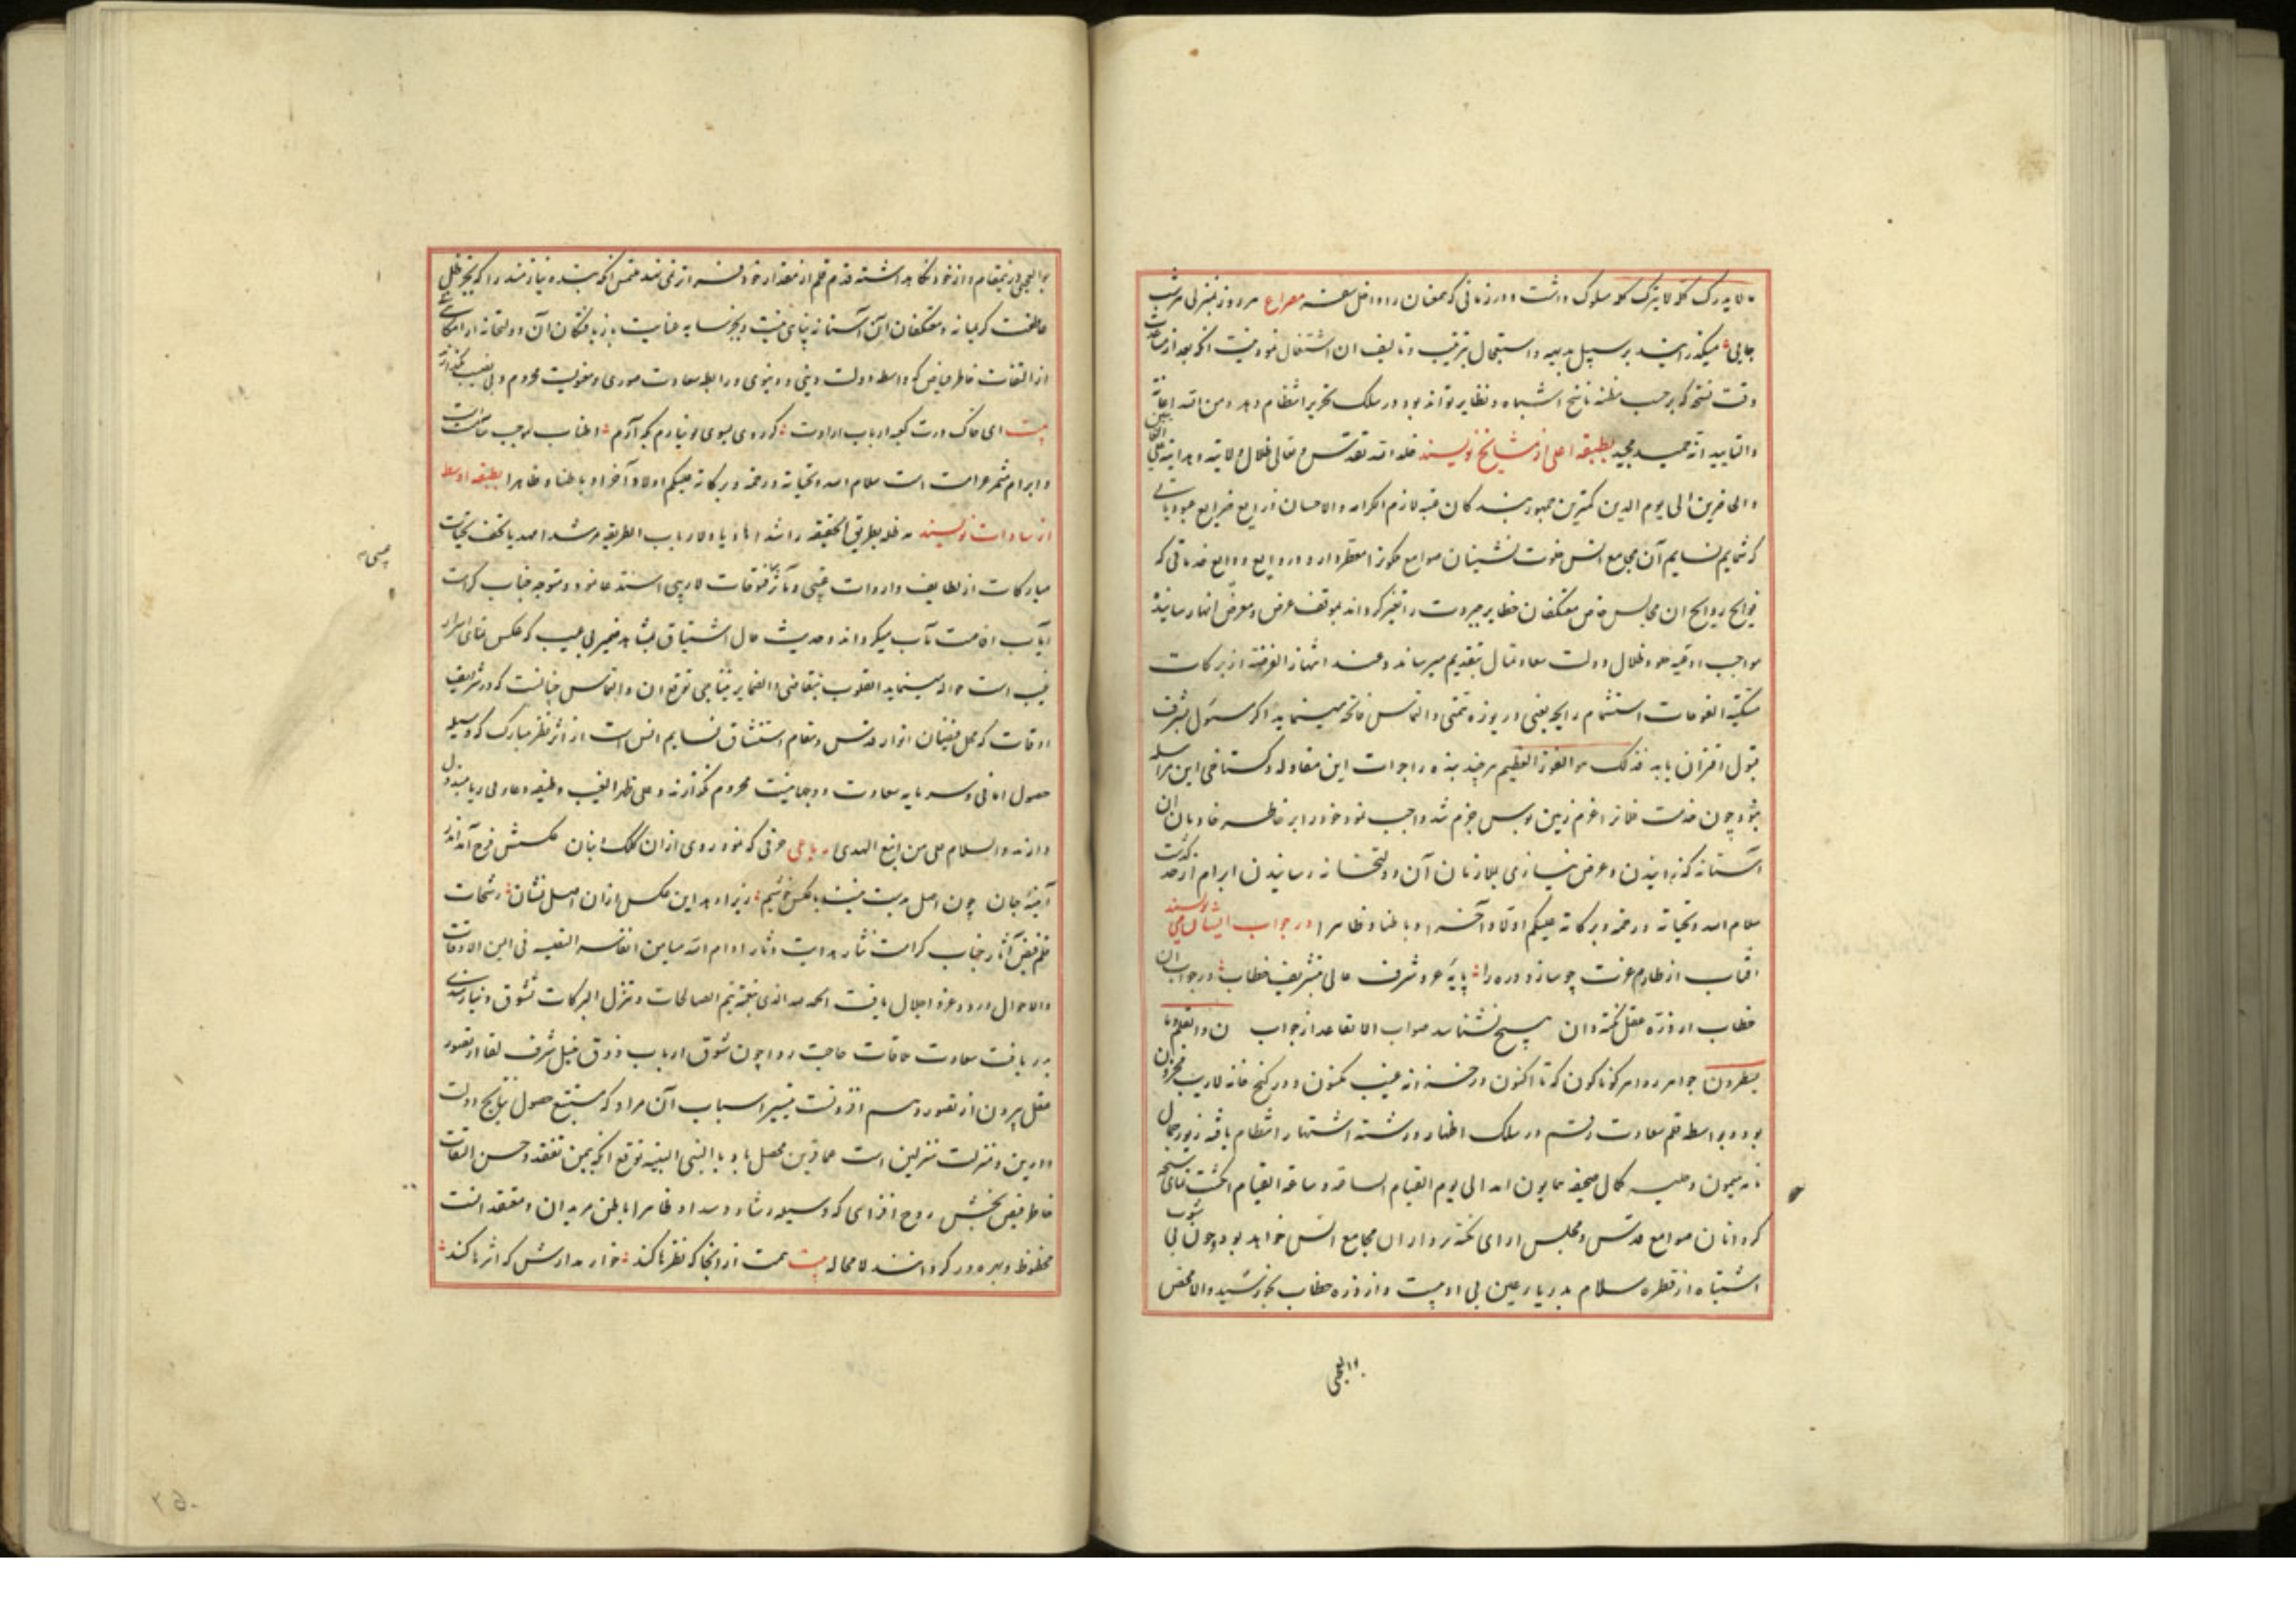 ما لا یدرک کله لا یترک کله سلوک داشت و در زمانی که عنان را داخل سفینه مصراع هر روز بمنزلی و هر شب
جایی میگذرانید بر سبیل بدیهه و استعجال بترتیب و تالیف ان اشتغال نمود نیت انکه بعد از مساعدت
وقت نسختی که بر حسب مظنه ناسخ اشباه و نظایر تواند بود در سلک تحریر انتظام دهد و من الله اعانة
والتایید انه حمید مجید بطبقه اعلی از مشایخ نویسند خلد الله تقدس و تعالی ظلال ولایته و هدایته علی العالمین
والحاضرین الی یوم الدین کمترین جمهور بندگان عتبه لازم الکرامه والاحسان
که شمایم نسایم آن مجامع انس خلوت نشینان صوامع ملکوت را معطر دارد و روایع ودایع خدماتی که
فوایح روایح ان مجالس خاص معتکفان حظایر جبروت را معنبر گرداند بموقف عرض و معرض انهار سانیده
مواجب ادعیه خلود ظلال دولت سعادتمال بتقدیم میرساند و عند انتهاز الفرصة از برکات
مسکیة الفوحات استشمام رایحه یعنی دریوزه تمنی و التماس فاتحه مینماید اگر مسئول بشرف
قبول اقتران یابد فذلک هو الفوز العظیم هر چند بنده را جرات این مقاوله و گستاخی این مراسله
نبود چون خدمت اعزم زمین بوس جزم شد واجب نمود خود را بر خاطر خادمان ان
آستانه گذرانیدن و عرض نیازی بملازمان آن دولتخانه رسانیدن ابرام از حد گذشت
سلام الله و تحیاته و رحمته و برکاته علیکم اولا و آخرا و باطنا و ظاهرا در جواب ایشان می نویسند
افتاب از طارم عزت چو سازد ذره را پایه عز و شرف عالی بتشریف خطاب در جواب ان
خطاب از ذره عقل نکته دان هیچ نشناسد صواب الا تقاعد از جواب ن والقلم وما
یسطرون جواهر زواهر گوناگون که تا اکنون در خزانه غیب مکنون و در کنج خانه لاریب مخزون
بود بواسطه قلم سعادت رقم در سلک اظهار و رشته اشتهار انتظام یافته زیور جمال
نامه میمون و حلیه کمال صحیفه همایون امد الی یوم القیام الساعة و ساعة القیام انگشت نمای سبحه
گردانان صوامع قدس و مجلس ارای نکته پردازان مجامع انس خواهد بود و چون بی شوب
اشتباه از قطره سلام بدریا رعین بی ادبیست و از ذره خطاب بخورشید والا محض
بوالعجبی
بوالعجبی درینمقام و از خود نگاه داشته قدم قلم از مقدار خود فراتر نمی نهد ملتمس انکه بنده نیازمند را که بجز ظل
عاطفت کریمانه معتکفان ان آستانه پناهی نیست و بجز سایه عنایت بازیافتگان آن دولتخانه ارامگاهی نه
از التفات خاطر فیاض که واسطه دولت دینی و دنیوی و رابطه سعادت صوری و معنویست محروم و بی نصیب نگذارند
بیت ای خاک درت کعبه ارباب ارادت گر روی بسوی تو نیارم بکه آرم اطناب موجب سامت است
و ابرام مثمر غرامت است سلام الله و تحیاته و رحمته و برکاته علیکم اولا و آخرا و باطنا و ظاهرا بطبقه اوسط
از سادات نویسند مد ظله بطریق الحقیقه راشدا هادیا و لارباب الطریقه مرشدا مهدیا تحف تحیات
مبارکات از لطایف واردات غیبی و مآثر فتوحات لاریبی استدعا نموده متوجه جناب کرامت
ایاب افاضت مآب میگرداند و حدیث حال اشتیاق بمشاهده ضمیر بی عیب که عکس نمای اسرار
غیب است حواله مینماید القلوب تتقاضی والضمایر تتناجی توقع ان و التماس چنانست که در شرایف
اوقات که محل فیضان انوار قدس و مقام استنشاق نسایم انس است از اثر نظر مبارک که وسیله
حصول امانی و سرمایه سعادت دوجهانیست محروم نگذارند و علی ظهر الغیب وظیفه دعاء بی ریا مبذول
دارند والسلام علی من اتبع الهدی رباعی حرفی که نمود روی ازان کلک و بنان عکسش فرح آمد اندر
آینه جان چون اصل بدست نیست با عکس خوشیم زیرا دهد این عکس ازان اصل نشان رشحات
قلم فیض آثار جناب کرامت نثار هدایت دثار ادام الله میامن انفاسه النفیسه فی ایمن الاوقات
والاحوال ورود عز و اجلال یافت الحمد لله الذی بنعمته تتم الصالحات و تتنزل البرکات تشوق و نیازمندی
بدریافت سعادت ملاقات حاجت روا چون شوق ارباب ذوق بنیل شرف لقا از تصور
عقل بیرون از تصور وهم افزونست تیسیر اسباب آن مراد که مستتبع حصول نتایج دولت
دارین و منزلت منزلین است عما قریب محصل باد بالنبی النبیه توقع انکه بیمن تفقد و حسن التفات
خاطر فیض بخش روح افزای که وسیله رشاد و سداد ظاهر و باطن مریدان و معتقدانست
محظوظ و بهره ور گردانند لا محاله بیت همت از انجا که نظرها کند خوار مدارش که اثرها کند